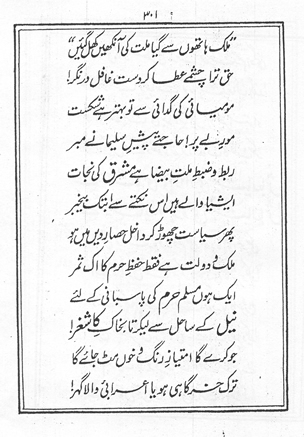 ۳۰۱
"ملک ہاتھوں سے گیا ملت کی آنکھیں کھل گئیں"
حق ترا چشمے عطا کردست غافل در نگر!
مومیائی کی گدائی سے تو بہتر ہے شکست
مور بے پر! حاجتے پیش سلیمانے مبر
ربط و ضبط ملت بیضا ہے مشرق کی نجات
ایشیا والے ہیں اس نکتے سے ابتک بیخبر
پھر سیاست چھوڑ کر داخل حصار دیں میں ہو
ملک و دولت ہے فقط حفظ حرم کا اک ثمر
ایک ہوں مسلم حرم کی پاسبانی کے لئے
نیل کے ساحل سے لیکر تابخاک کاشغر!
جو کرے گا امتیاز رنگ و خوں مٹ جائے گا
ترک خرگاہی ہو یا اعرابی والا گہر!